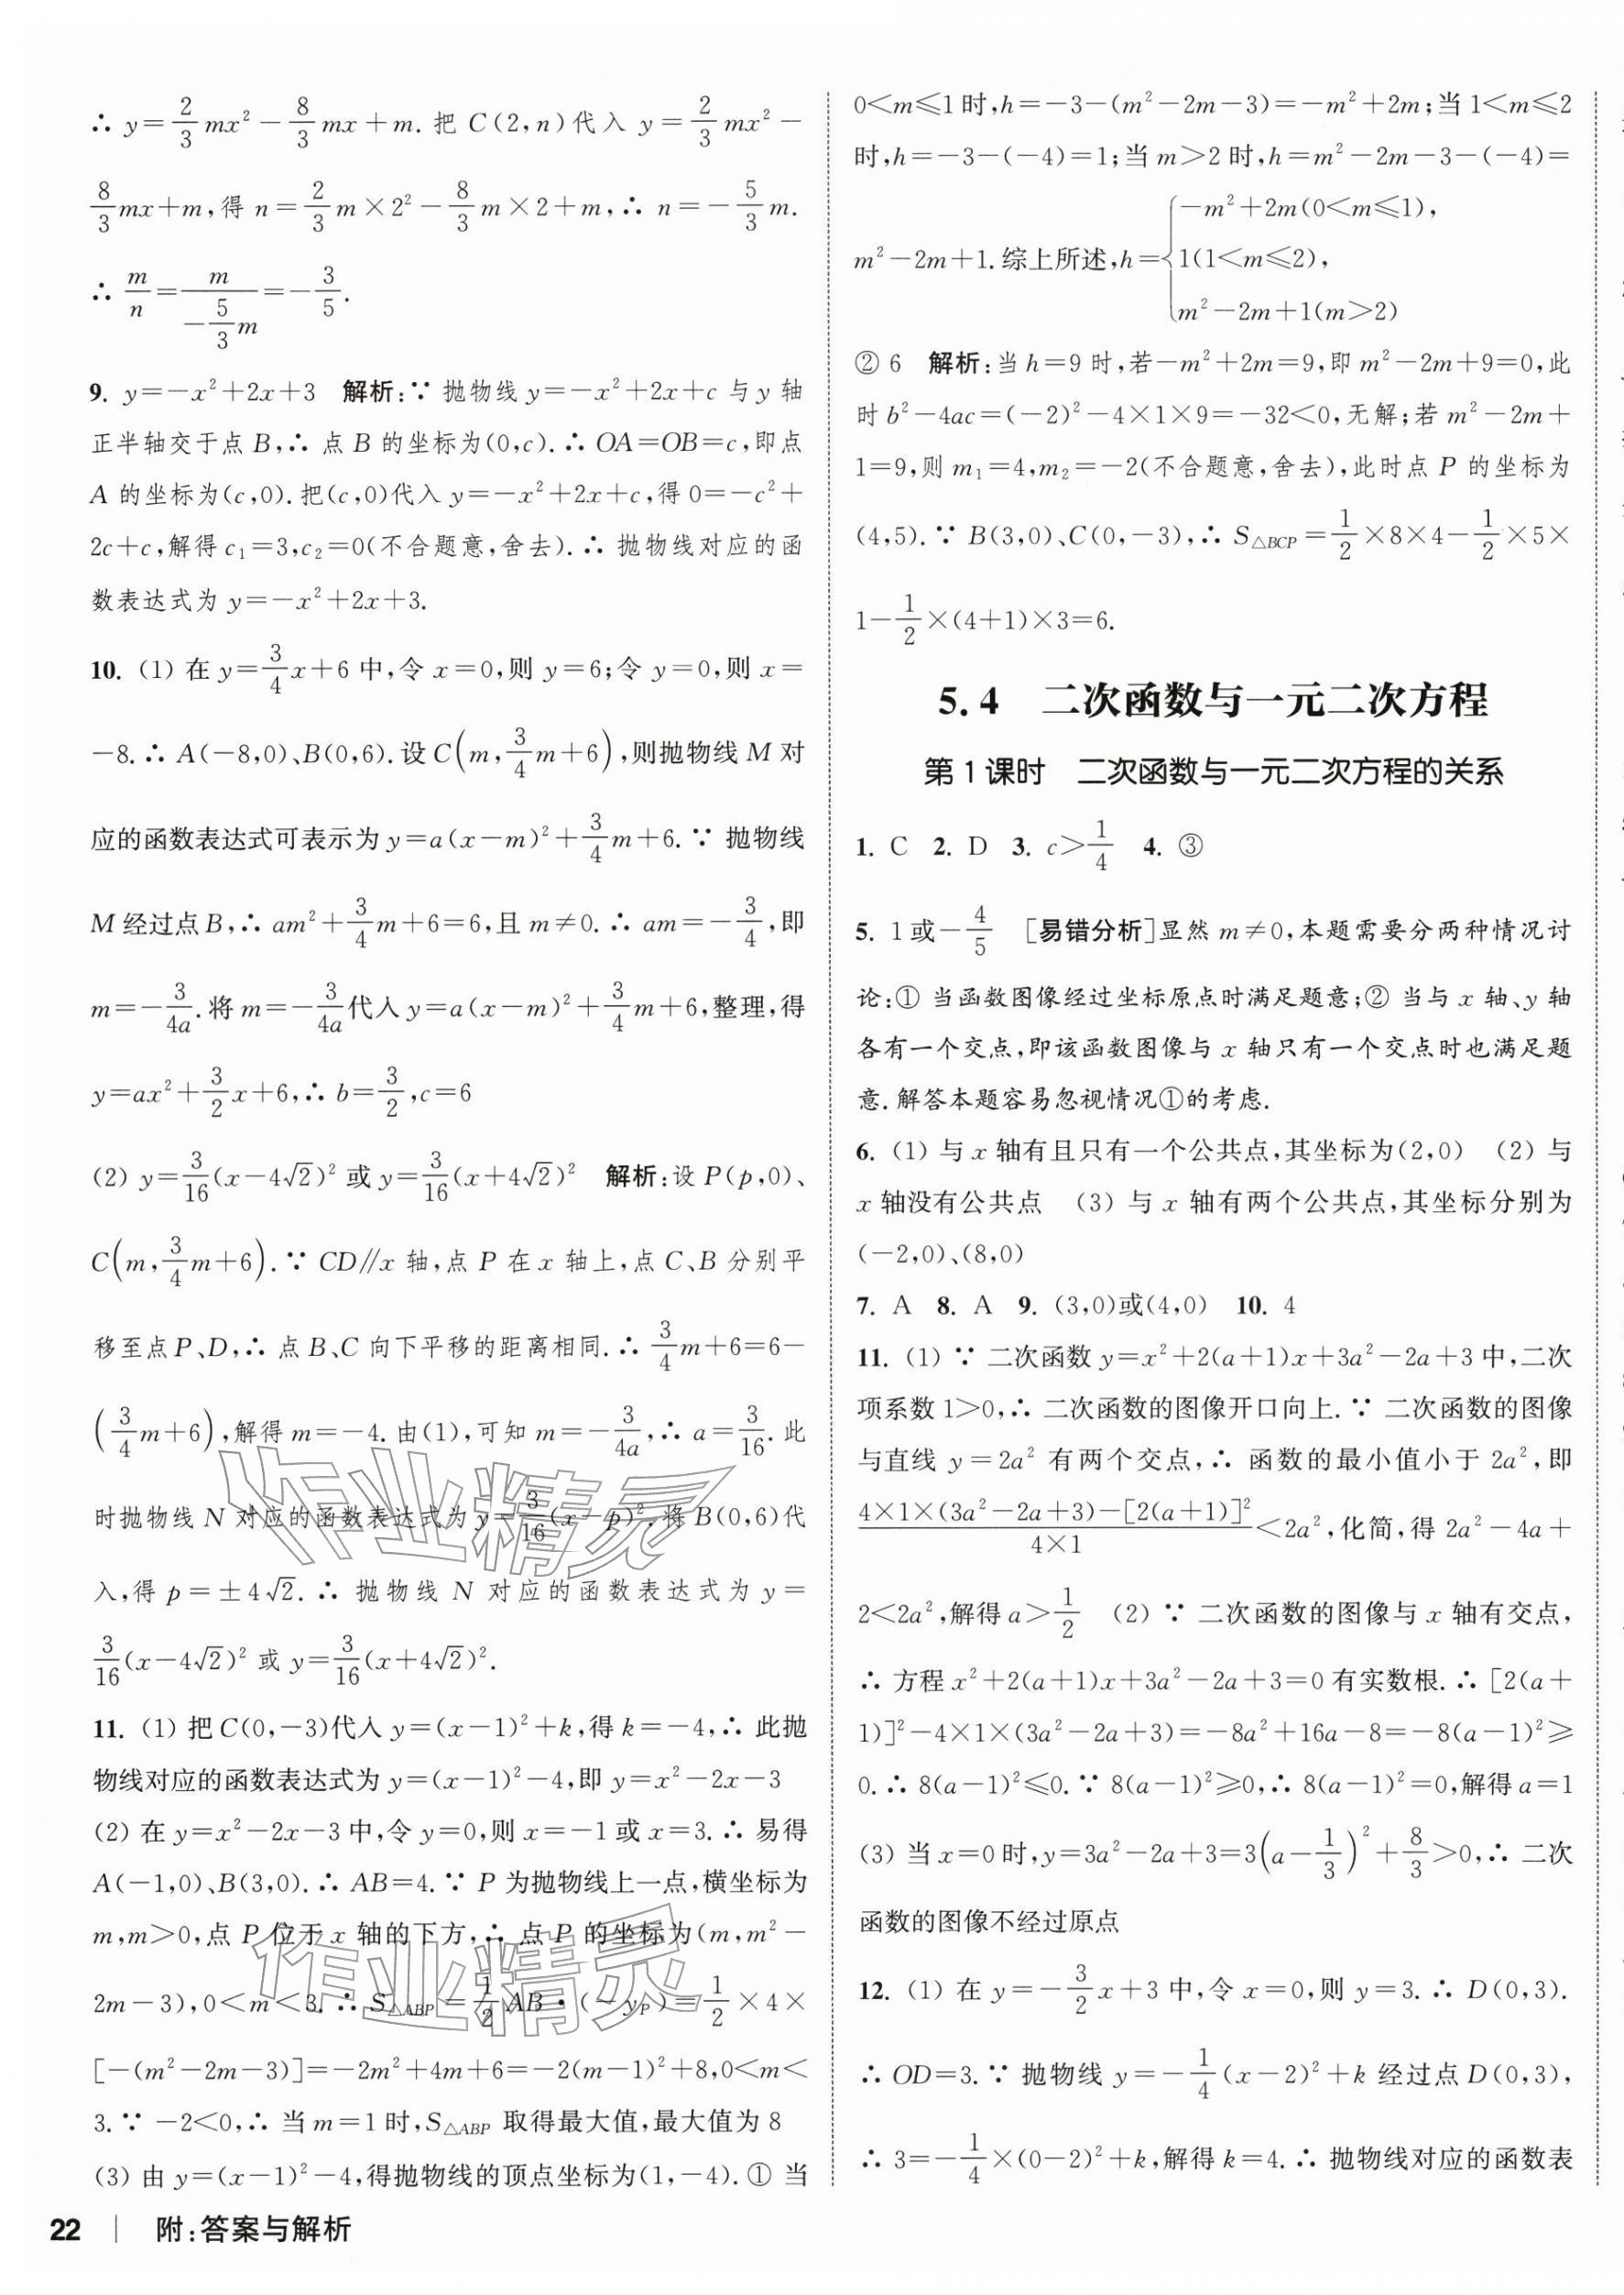 ∴ y=2/3mx²-8/3mx+m. 把 C(2,n)代入 y=2/3mx²-
8/3mx+m,得 n=2/3m×2²-8/3m×2+m,∴ n=-5/3m.
∴ m/n=m/(-5/3m)=-3/5.
9. y=-x²+2x+3 解析:∵ 抛物线 y=-x²+2x+c 与 y 轴
正半轴交于点 B,∴ 点 B 的坐标为(0,c).∴ OA=OB=c,即点
A 的坐标为(c,0).把(c,0)代入 y=-x²+2x+c,得 0=-c²+
2c+c,解得 c₁=3,c₂=0(不合题意,舍去).∴ 抛物线对应的函
数表达式为 y=-x²+2x+3.
10. (1) 在 y=3/4x+6 中,令 x=0,则 y=6;令 y=0,则 x=
-8.∴ A(-8,0)、B(0,6).设 C(m,3/4m+6),则抛物线 M 对
应的函数表达式可表示为 y=a(x-m)²+3/4m+6.∵ 抛物线
M 经过点 B,∴ am²+3/4m+6=6,且 m≠0.∴ am=-3/4,即
m=-3/4a.将 m=-3/4a代入 y=a(x-m)²+3/4m+6,整理,得
y=ax²+3/2x+6,∴ b=3/2,c=6
(2) y=3/16(x-4√2)² 或 y=3/16(x+4√2)² 解析:设 P(p,0)、
C(m,3/4m+6).∵ CD∥x 轴,点 P 在 x 轴上,点 C、B 分别平
移至点 P、D,∴ 点 B、C 向下平移的距离相同.∴ 3/4m+6=6-
(3/4m+6),解得 m=-4.由(1),可知 m=-3/4a,∴ a=3/16.此
时抛物线 N 对应的函数表达式为 y=3/16(x-p)².将 B(0,6)代
入,得 p=±4√2.∴ 抛物线 N 对应的函数表达式为 y=
3/16(x-4√2)² 或 y=3/16(x+4√2)².
11. (1) 把 C(0,-3)代入 y=(x-1)²+k,得 k=-4,∴ 此抛
物线对应的函数表达式为 y=(x-1)²-4,即 y=x²-2x-3
(2) 在 y=x²-2x-3 中,令 y=0,则 x=-1 或 x=3.∴ 易得
A(-1,0)、B(3,0).∴ AB=4.∵ P 为抛物线上一点,横坐标为
m,m>0,点 P 位于 x 轴的下方,∴ 点 P 的坐标为(m,m²-
2m-3),0<m<3.∴ S△ABP=1/2AB·(-yP)=1/2×4×
[-(m²-2m-3)]=-2m²+4m+6=-2(m-1)²+8,0<m<
3.∵ -2<0,∴ 当 m=1 时,S△ABP 取得最大值,最大值为 8
(3) 由 y=(x-1)²-4,得抛物线的顶点坐标为(1,-4).① 当
22 | 附:答案与解析
0<m≤1 时,h=-3-(m²-2m-3)=-m²+2m;当 1<m≤2
时,h=-3-(-4)=1;当 m>2 时,h=m²-2m-3-(-4)=
m²-2m+1.综上所述,h={-m²+2m(0<m≤1),
1(1<m≤2),
m²-2m+1(m>2)
② 6 解析:当 h=9 时,若-m²+2m=9,即 m²-2m+9=0,此
时 b²-4ac=(-2)²-4×1×9=-32<0,无解;若 m²-2m+
1=9,则 m₁=4,m₂=-2(不合题意,舍去),此时点 P 的坐标为
(4,5).∵ B(3,0)、C(0,-3),∴ S△BCP=1/2×8×4-1/2×5×
1-1/2×(4+1)×3=6.
5.4 二次函数与一元二次方程
第 1 课时 二次函数与一元二次方程的关系
1. C 2. D 3. c>1/4 4. ③
5. 1 或-4/5 [易错分析]显然 m≠0,本题需要分两种情况讨
论:① 当函数图像经过坐标原点时满足题意;② 当与 x 轴、y 轴
各有一个交点,即该函数图像与 x 轴只有一个交点时也满足题
意.解答本题容易忽视情况①的考虑.
6. (1) 与 x 轴有且只有一个公共点,其坐标为(2,0) (2) 与
x 轴没有公共点 (3) 与 x 轴有两个公共点,其坐标分别为
(-2,0)、(8,0)
7. A 8. A 9. (3,0)或(4,0) 10. 4
11. (1) ∵ 二次函数 y=x²+2(a+1)x+3a²-2a+3 中,二次
项系数 1>0,∴ 二次函数的图像开口向上.∵ 二次函数的图像
与直线 y=2a² 有两个交点,∴ 函数的最小值小于 2a²,即
(4×1×(3a²-2a+3)-[2(a+1)]²)/(4×1)<2a²,化简,得 2a²-4a+
2<2a²,解得 a>1/2 (2) ∵ 二次函数的图像与 x 轴有交点,
∴ 方程 x²+2(a+1)x+3a²-2a+3=0 有实数根.∴ [2(a+
1)]²-4×1×(3a²-2a+3)=-8a²+16a-8=-8(a-1)²≥
0.∴ 8(a-1)²≤0.∵ 8(a-1)²≥0,∴ 8(a-1)²=0,解得 a=1
(3) 当 x=0 时,y=3a²-2a+3=3(a-1/3)²+8/3>0,∴ 二次
函数的图像不经过原点
12. (1) 在 y=-3/2x+3 中,令 x=0,则 y=3.∴ D(0,3).
∴ OD=3.∵ 抛物线 y=-1/4(x-2)²+k 经过点 D(0,3),
∴ 3=-1/4×(0-2)²+k,解得 k=4.∴ 抛物线对应的函数表
作业精灵
作业精灵